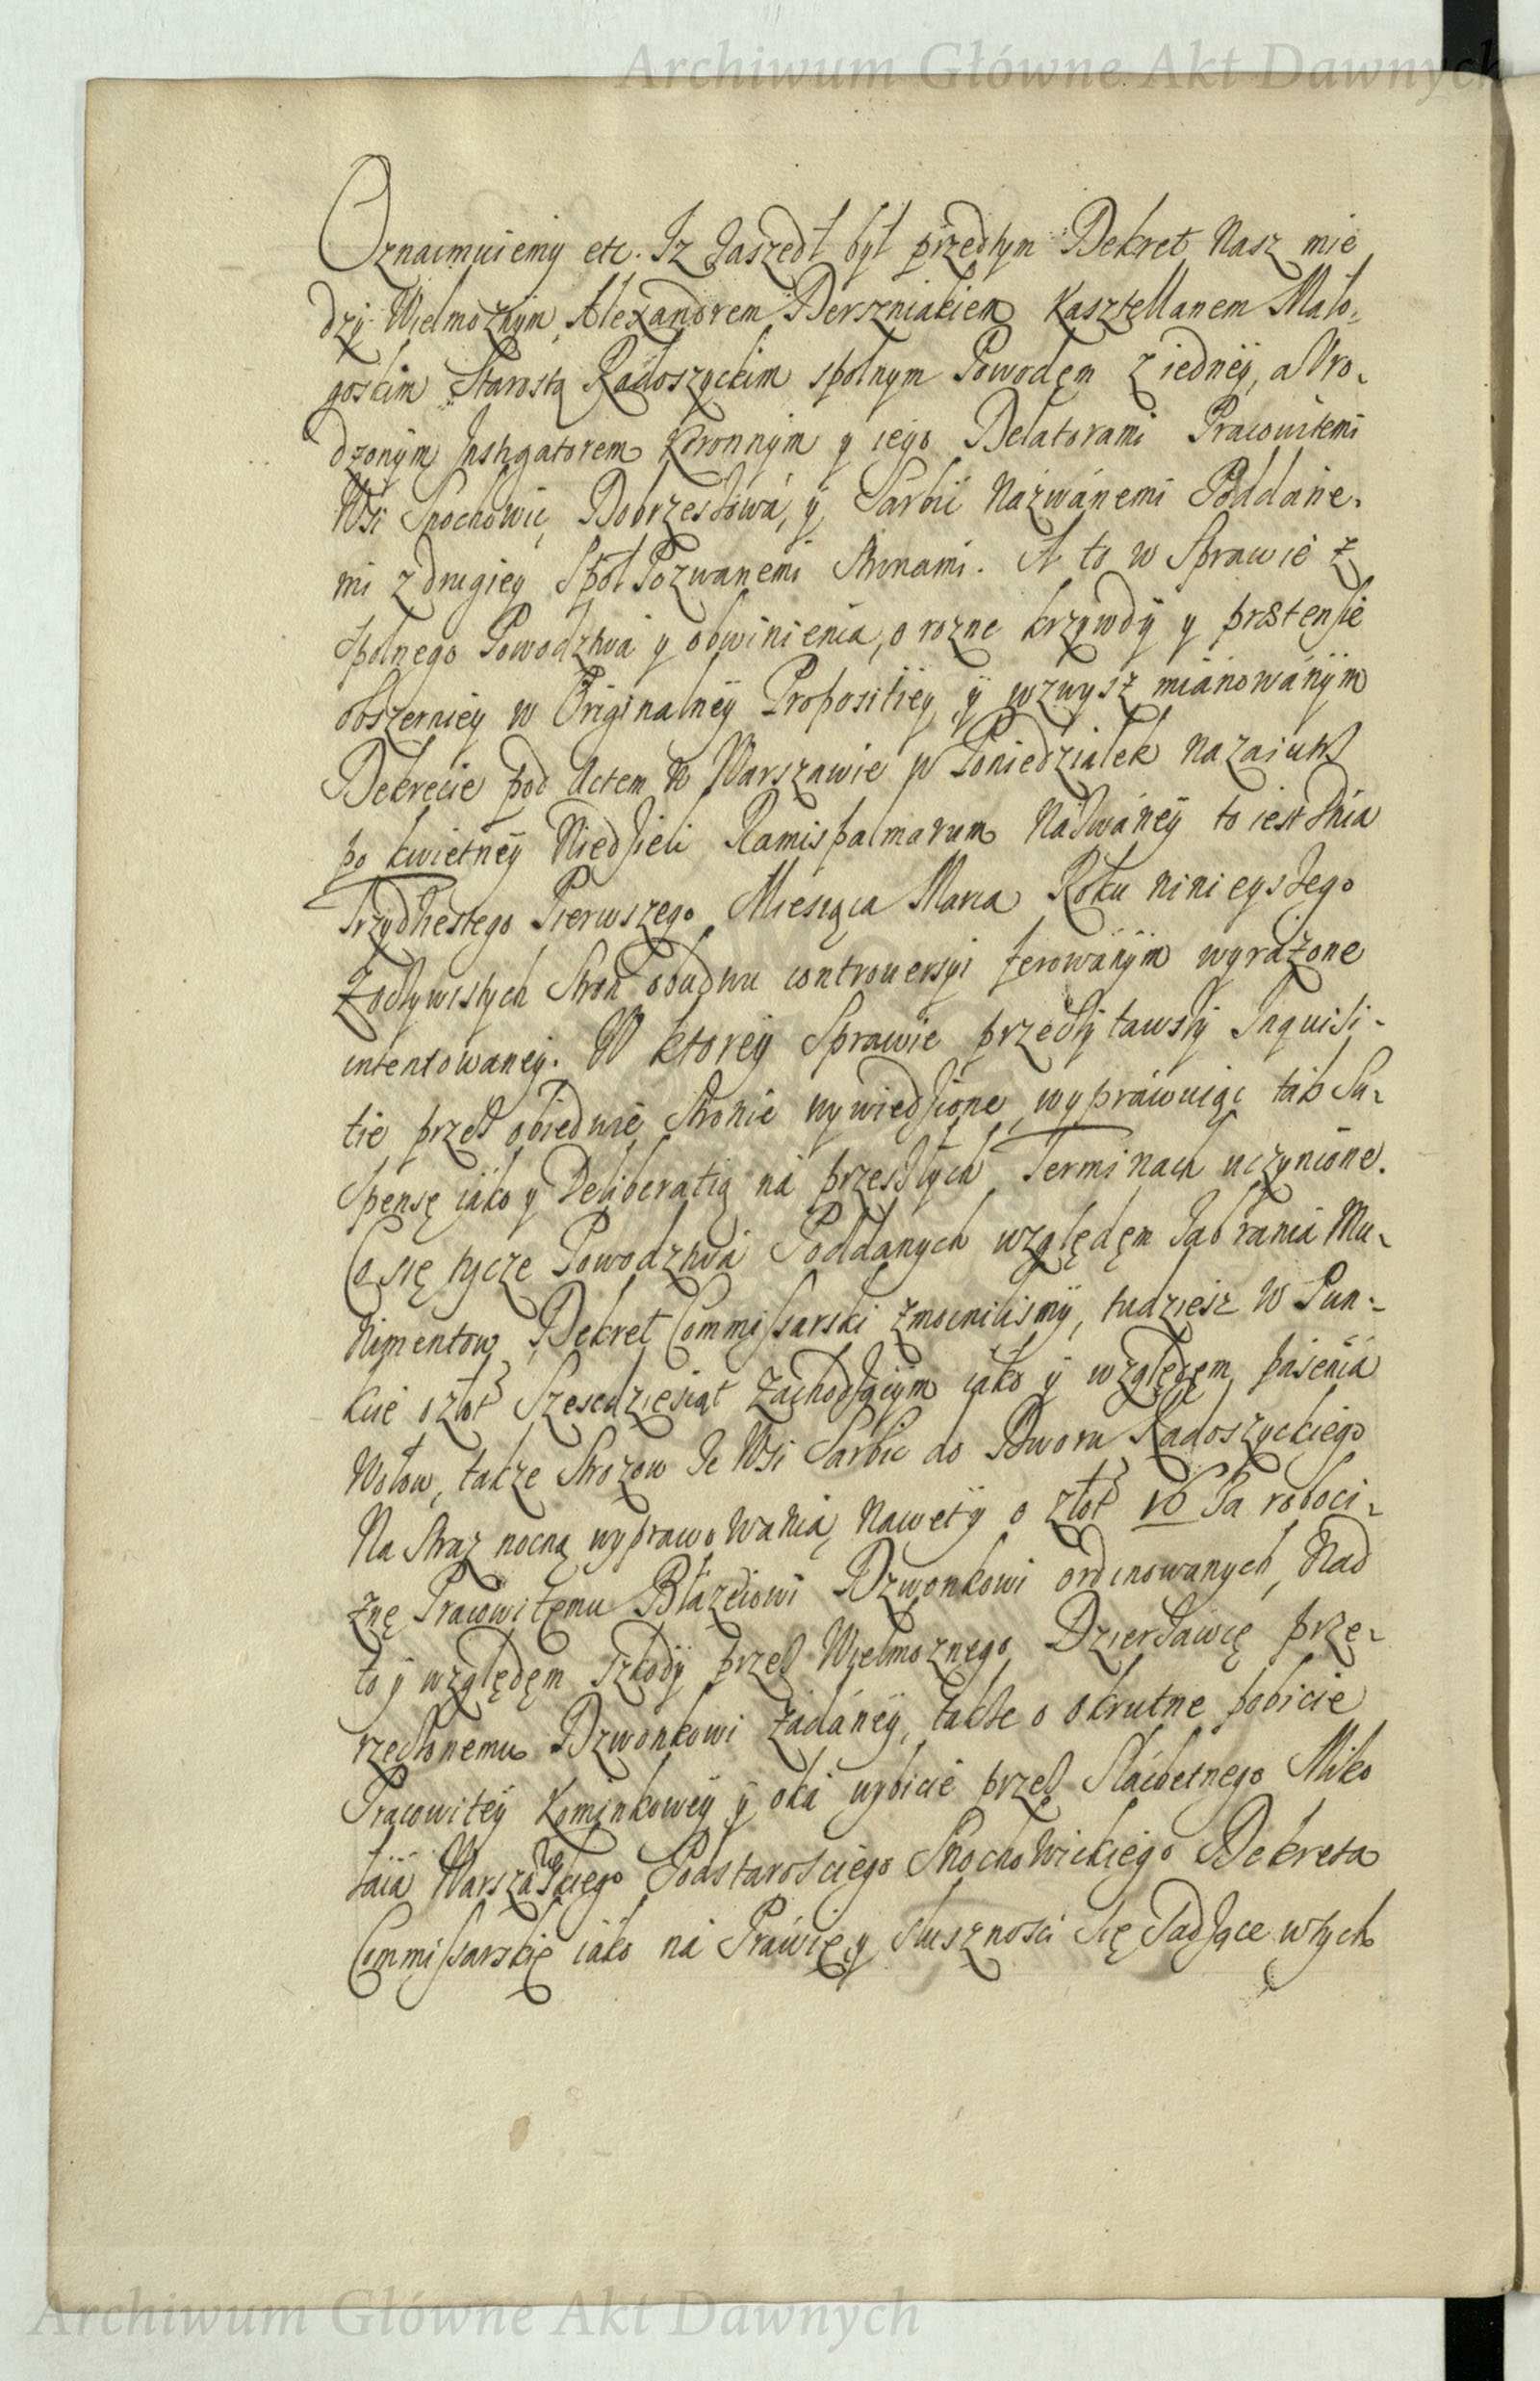 Archiwum Główne Akt Dawnych
Oznaimuiemy etc. Iz zaszedł był przedtym Dekret Nasz mie
dzy Wielmoznym Alexandrem Derszniakiem Kasztellanem Mało-
goskim Starostą Radoszyckim spolnym Powodęm z iedney, a Uro-
dzonym Instigatorem Koronnym y iego Delatorami Pracowitemi
Wsi Snochowic, Dobrzeszowa, y Sarbic Nazwanemi Poddane-
mi z drugiey Społ Pozwanemi Stronami. A to w Sprawie z
Spolnego Powodztwa y obwinienia, o rozne krzywdy y prætensie
obszerniey w Originalney Propositiey y wzwysz mianowanym
Dekrecie pod Actem w Warszawie w Poniedziałek nazaiutrz
po kwietney Niedzieli Ramispalmarum Nazwaney to iest dnia
Trzydziestego Pierwszego Miesiąca Marca Roku ninieyszego
Zoczywistych Stron obudwu controuersyi ferowanym wyrażone
intentowaney. W ktorey Sprawie przeczytawszy Inquisi-
tie przez obiedwie Stronie wywiedzione, wyprawuiąc tak Su-
spensę iako y Deliberatią na przeszłych Terminach uczynione.
Co się tycze Powodztwa Poddanych względęm Zabrania Mu-
nimentow Dekret Commissarski zmocnilismy, tudziesz w Pun-
kcie o złot Szescdziesiąt Zachodzącym iako y względęm pasienia
Wołow, takze Strozow Ze Wsi Sarbic do Dworu Radoszyckiego
Na Straz nocną wyprawowania, Nawet y o złot Za roboci-
znę Pracowitęmu Błazeiowi Dzwonkowi ordinowanych, Nad
to y względęm szkody przez Wielmoznego Dzierzawcę prze-
rzeczonemu Dzwonkowi Zadaney, takze o okrutne pobicie
Pracowitey Kominkowey y oka wybicie przez Slachetnego Miko
łaia Warszawskiego Podstarosciego Snochowickiego Dekreta
Commissarskie iako na Prawie y Słusznosci Się Sadzące w tych
Archiwum Główne Akt Dawnych